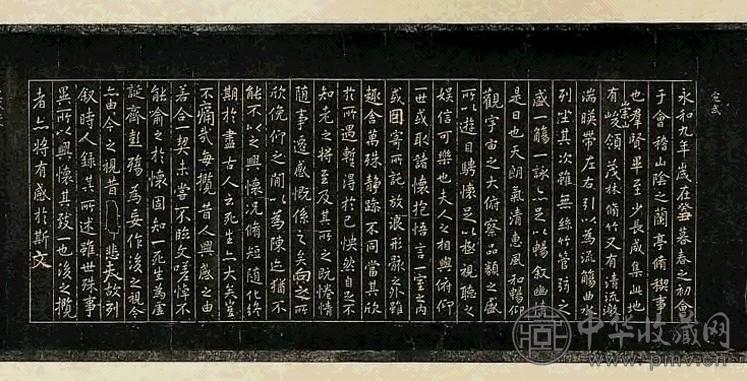 定武
永和九年歲在癸丑暮春之初會
于會稽山陰之蘭亭脩稧事
也群賢畢至少長咸集此地
有崇山峻領茂林脩竹又有清流激
湍暎帶左右引以為流觴曲水
列坐其次雖無絲竹管弦之
盛一觴一詠亦足以暢敘幽情
是日也天朗氣清惠風和暢仰
觀宇宙之大俯察品類之盛
所以遊目騁懷足以極視聽之
娛信可樂也夫人之相與俯仰
一世或取諸懷抱悟言一室之內
或因寄所託放浪形骸之外雖
趣舍萬殊靜躁不同當其欣
於所遇蹔得於己怏然自足不
知老之將至及其所之既惓情
隨事遷感慨係之矣向之所
欣俛仰之間以為陳迹猶不
能不以之興懷況脩短隨化終
期於盡古人云死生亦大矣豈
不痛哉每攬昔人興感之由
若合一契未嘗不臨文嗟悼不
能喻之於懷固知一死生為虛
誕齊彭殤為妄作後之視今
亦由今之視昔悲夫故列
敘時人錄其所述雖世殊事
異所以興懷其致一也後之攬
者亦將有感於斯文
中华收藏网